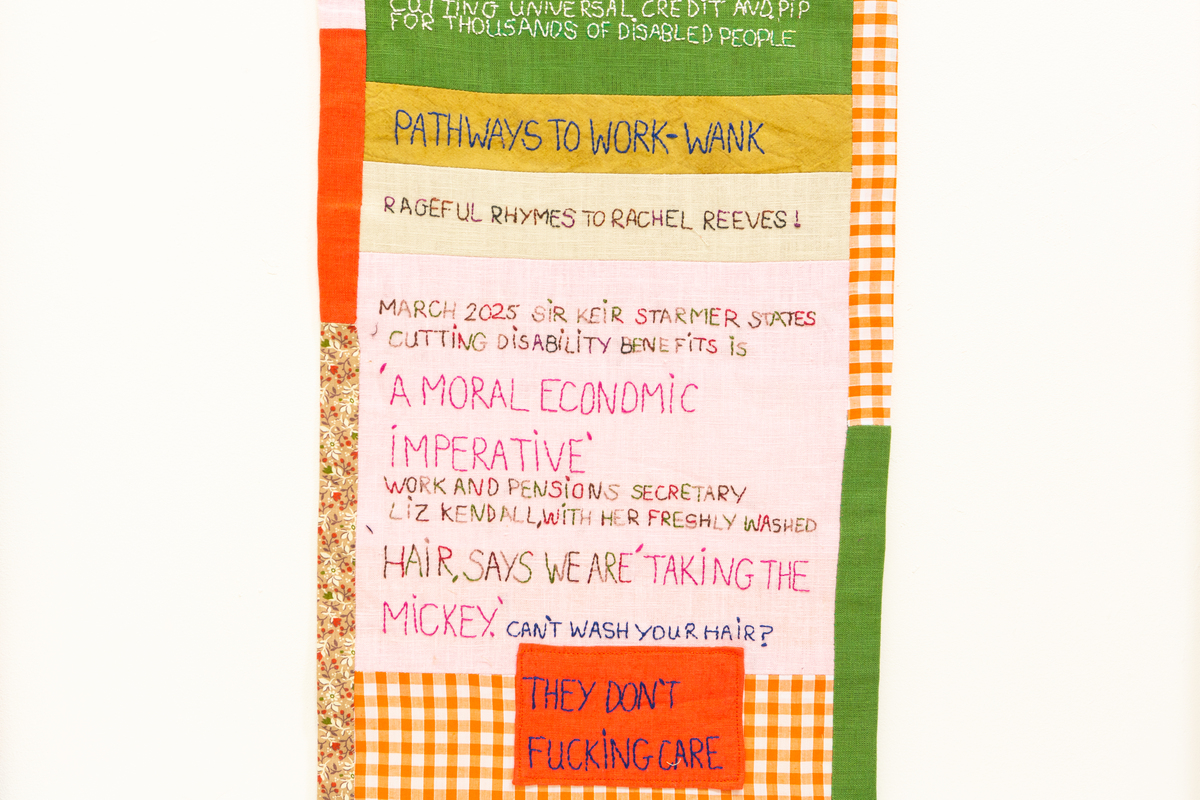 CUTTING UNIVERSAL CREDIT AND PIP
FOR THOUSANDS OF DISABLED PEOPLE
PATHWAYS TO WORK-WANK
RAGEFUL RHYMES TO RACHEL REEVES!
MARCH 2025 SIR KEIR STARMER STATES
CUTTING DISABILITY BENEFITS IS
'A MORAL ECONOMIC
IMPERATIVE'
WORK AND PENSIONS SECRETARY
LIZ KENDALL, WITH HER FRESHLY WASHED
HAIR, SAYS WE ARE 'TAKING THE
MICKEY.' CAN'T WASH YOUR HAIR?
THEY DON'T
FUCKING CARE